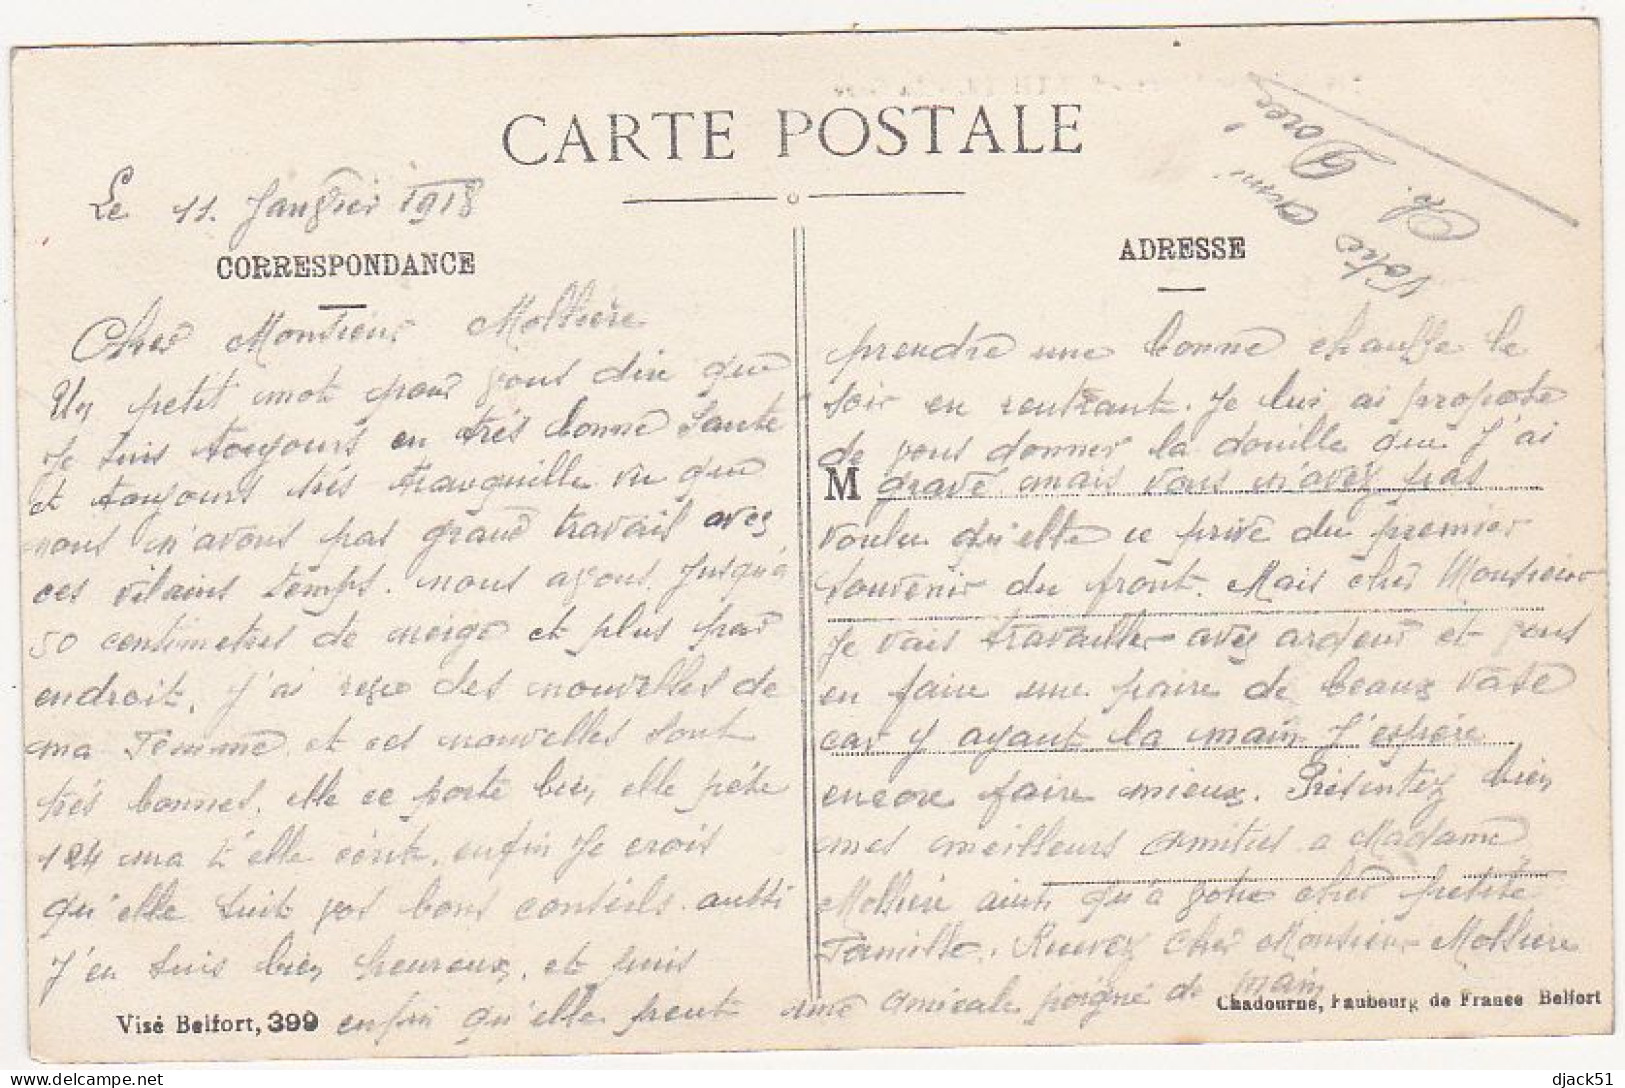 CARTE POSTALE
Le 11 Janvier 1918
CORRESPONDANCE
Cher Monsieur Mollière
Un petit mot pour vous dire que
Je suis toujours en très bonne Santé
et toujours très tranquille vu que
nous n'avons pas grand travail avec
ces vilains temps. nous avons Jusqu'à
50 centimetres de neige et plus par
endroit. J'ai reçu des nouvelles de
ma Femme et ces nouvelles sont
très bonnes. elle ce porte bien, elle pése
124 ma t'elle écrit. enfin Je crois
qu'elle suit vos bons conseils. aussi
J'en suis bien heureux, et puis
enfin qu'elle peut
Visé Belfort, 399
ADRESSE
prendre une bonne chauffe le
soir en rentrant. Je lui ai proposé
de vous donner la douille que J'ai
M
gravé mais vous n'avez pas
voulu qu'elle ce prive du premier
souvenir du front. Mais cher Monsieur
Je vais travailler avec ardeur et vous
en faire une paire de beaux vase
car y ayant la main J'espére
encore faire mieux. Présentez bien
mes meilleurs amitiés a Madame
Mollière ainsi qu'à votre cher petite
Famille. Recevez cher Monsieur Mollière
une amicale poigné de main
Votre ami
Ch. Doré
Chadourne, Faubourg de France Belfort
djack51